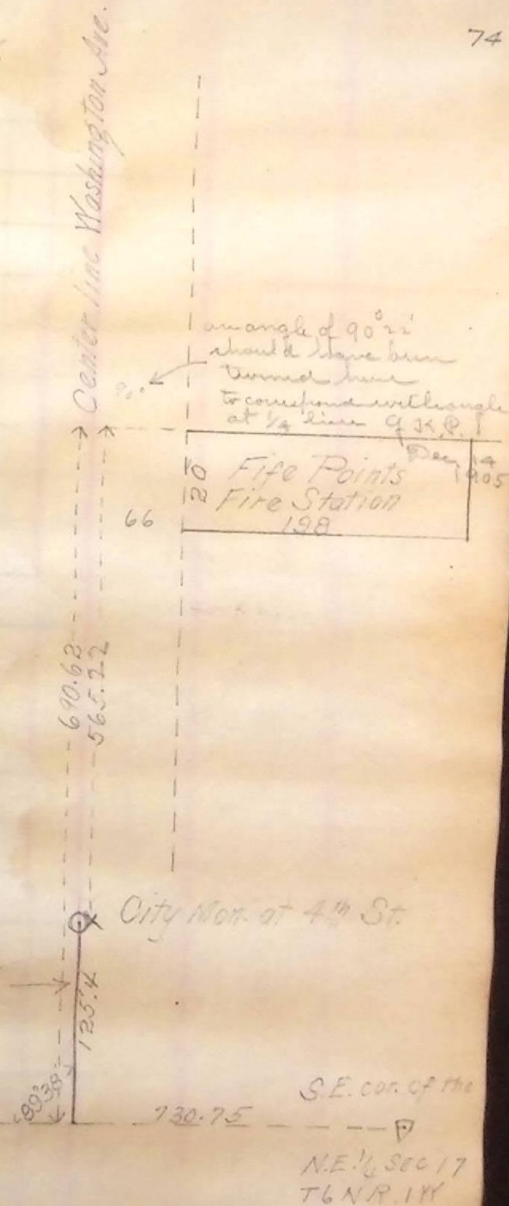 74
Center line Washington Ave.
an angle of 90°22'
should have been
turned here
to correspond with angle
at 1/4 line
Dec 14
1905
90°
Fife Points
Fire Station
198
20
66
690.62
565.22
City Mon. at 4th St.
125.4
89°38'
730.75
S.E. cor. of the
N.E. 1/4 Sec 17
T6 N R. 1W